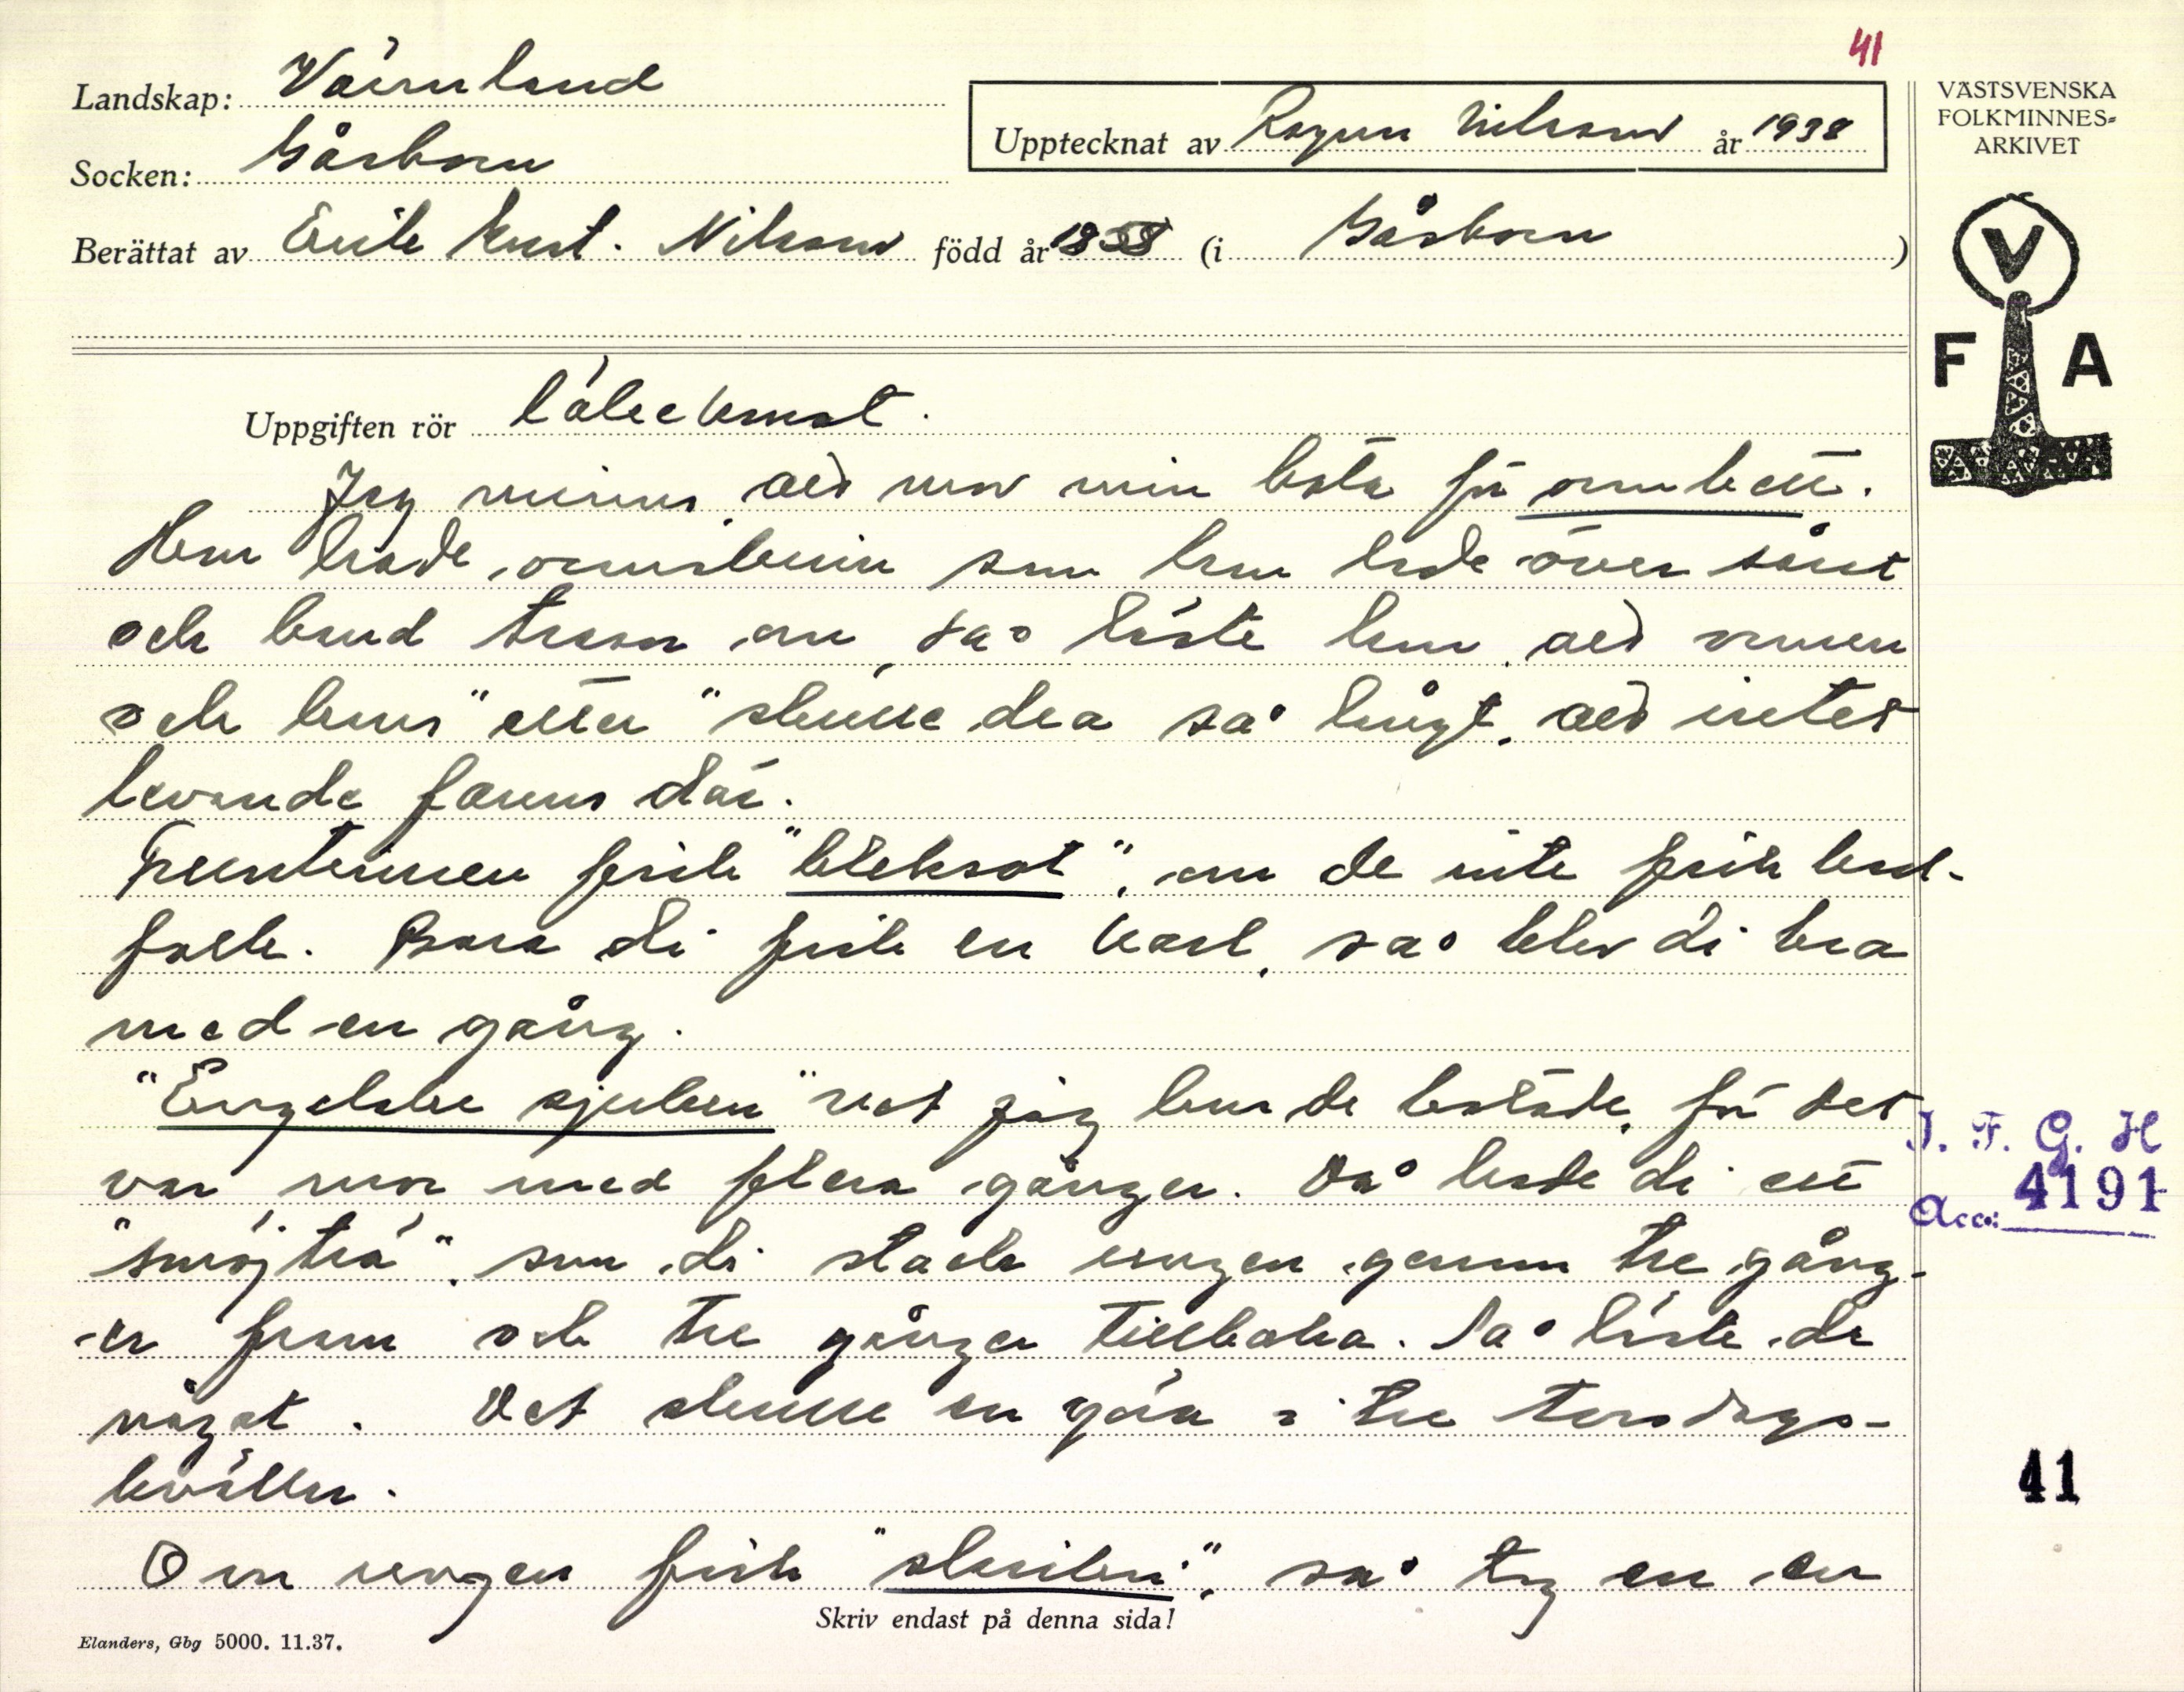 41
Landskap: Värmland
Socken: Gåsborn
Upptecknat av Ragnar Nilsson år 1938
Berättat av Erik Aug. Nilsson född år 1858 (i Gåsborn)
VÄSTSVENSKA
FOLKMINNES-
ARKIVET
V
F A
Uppgiften rör läkekonst.
Jag minns, att mor min bota för ormbett.
Hon hade ormskinn som hon lade över såret
och band trasor om, så läste hon att ormen
och hans "etter" skulle dra så långt, att intet
levande fanns där.
Fruntimmer fick "bleksot", om de inte fick karl-
folk. Bara di fick en karl, så blev di bra
med en gång.
"Engelska sjukan" vet jag hur de botade, för det
var mor med flera gånger. Då hade di ett
"smöjträ", som di stack ungen genom tre gång-
er fram och tre gånger tillbaka. Så läste di
något. Det skulle en göra i tre torsdags-
kvällar.
Om ungen fick "skriken", så tog en en
Skriv endast på denna sida!
Elanders, Gbg 5000. 11.37.
I. F. G. H
Acc: 4191
41